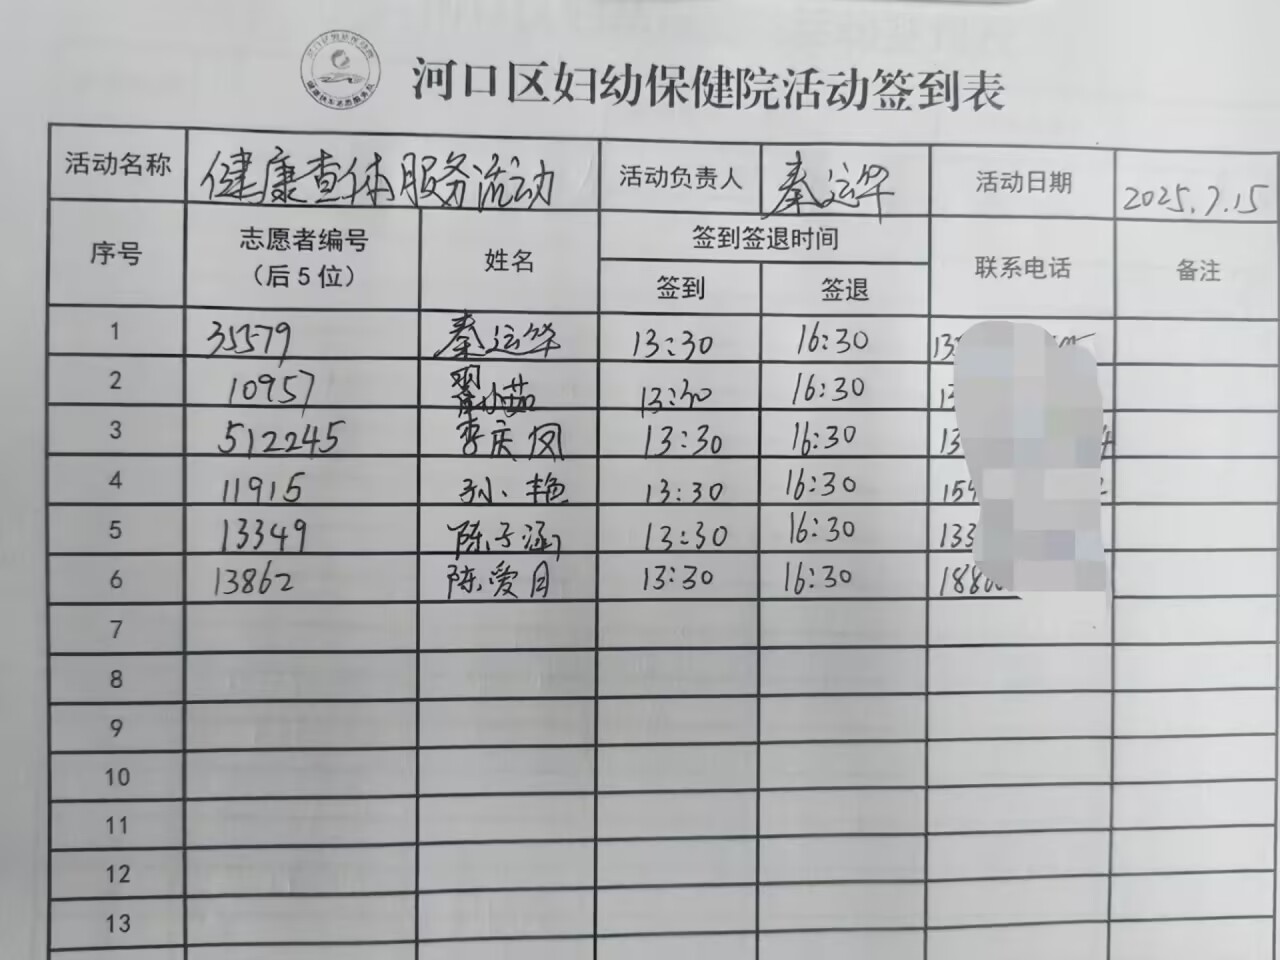 河口区妇幼保健院活动签到表
活动名称 健康查体服务活动 活动负责人 秦运华 活动日期 2025.7.15
序号 志愿者编号（后5位） 姓名 签到签退时间 联系电话 备注
签到 签退
1 35579 秦运华 13:30 16:30
2 10957 翟小茹 13:30 16:30
3 512245 李庆凤 13:30 16:30
4 11915 孙艳 13:30 16:30 15
5 13349 陈子涵 13:30 16:30 133
6 13862 陈爱月 13:30 16:30 188
7
8
9
10
11
12
13